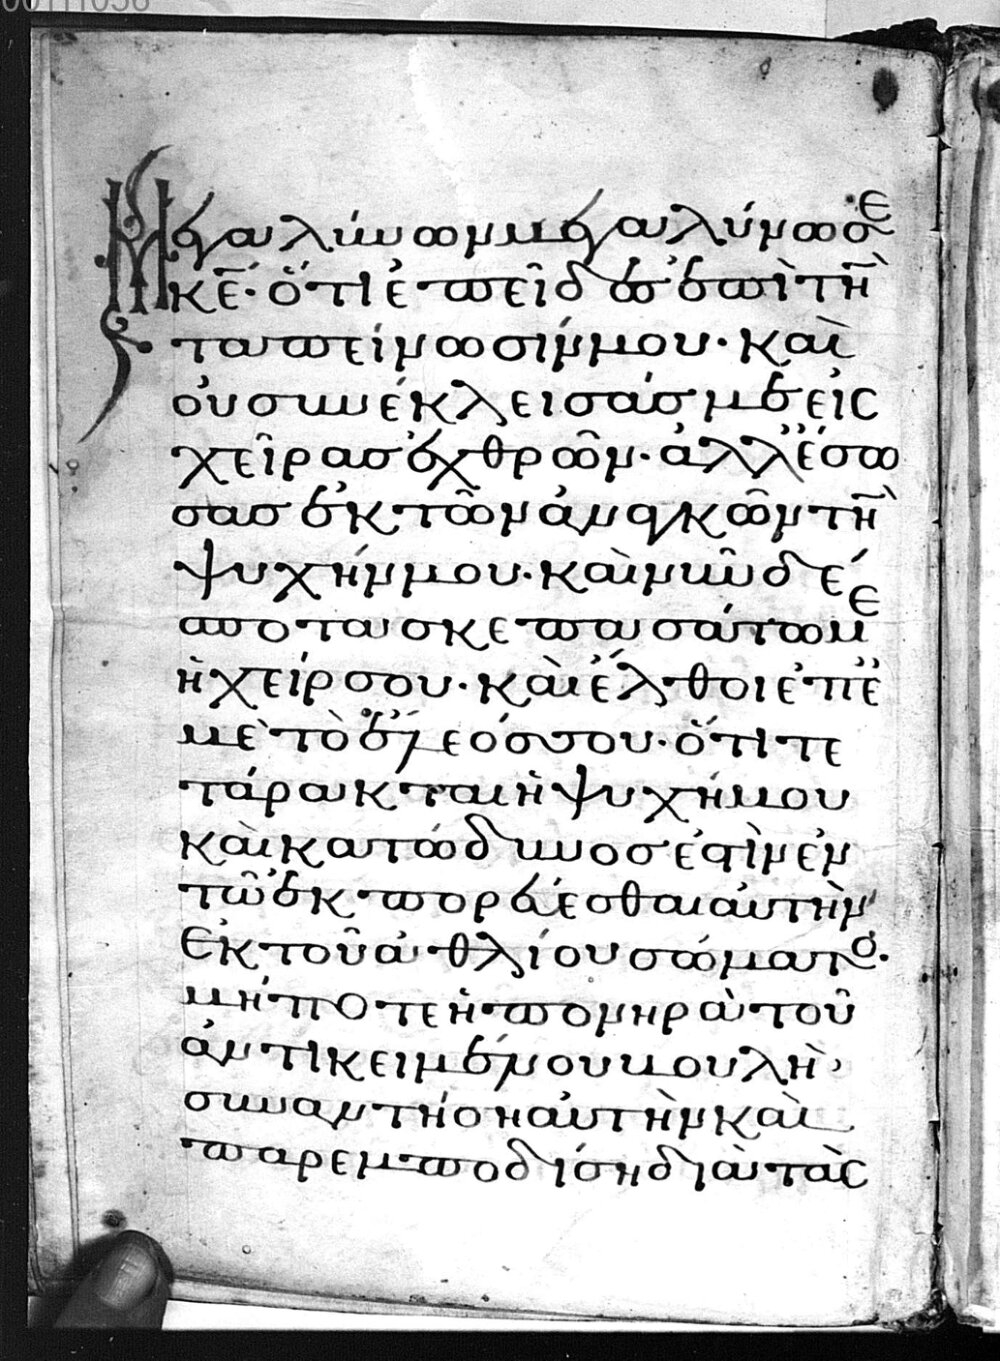 Μεγαλύνων μεγαλύνω σε
κε̅· ὅτι ἐπεῖδες ἐπὶ τὴν
ταπείνωσίν μου· καὶ
οὐ συνέκλεισάς με εἰς
χεῖρας ἐχθρῶν· ἀλλ' ἔσω
σας ἐκ τῶν ἀναγκῶν τὴν
ψυχήν μου· καὶ νῦν δέ
σποτα σκεπασάτω με
ἡ χείρ σου· καὶ ἔλθοι ἐπ' ἐ
μὲ τὸ ἔλεός σου· ὅτι τε
τάρακται ἡ ψυχή μου
καὶ κατώδυνος ἐστὶν ἐν
τῶ ἐκπορεύεσθαι αὐτὴν
ἐκ τοῦ ἀθλίου σώματος·
μή ποτε ἡ πονηρὰ τοῦ
ἀντικειμένου βουλὴ
συναντήση αὐτὴν καὶ
παρεμποδίση διὰ τὰς